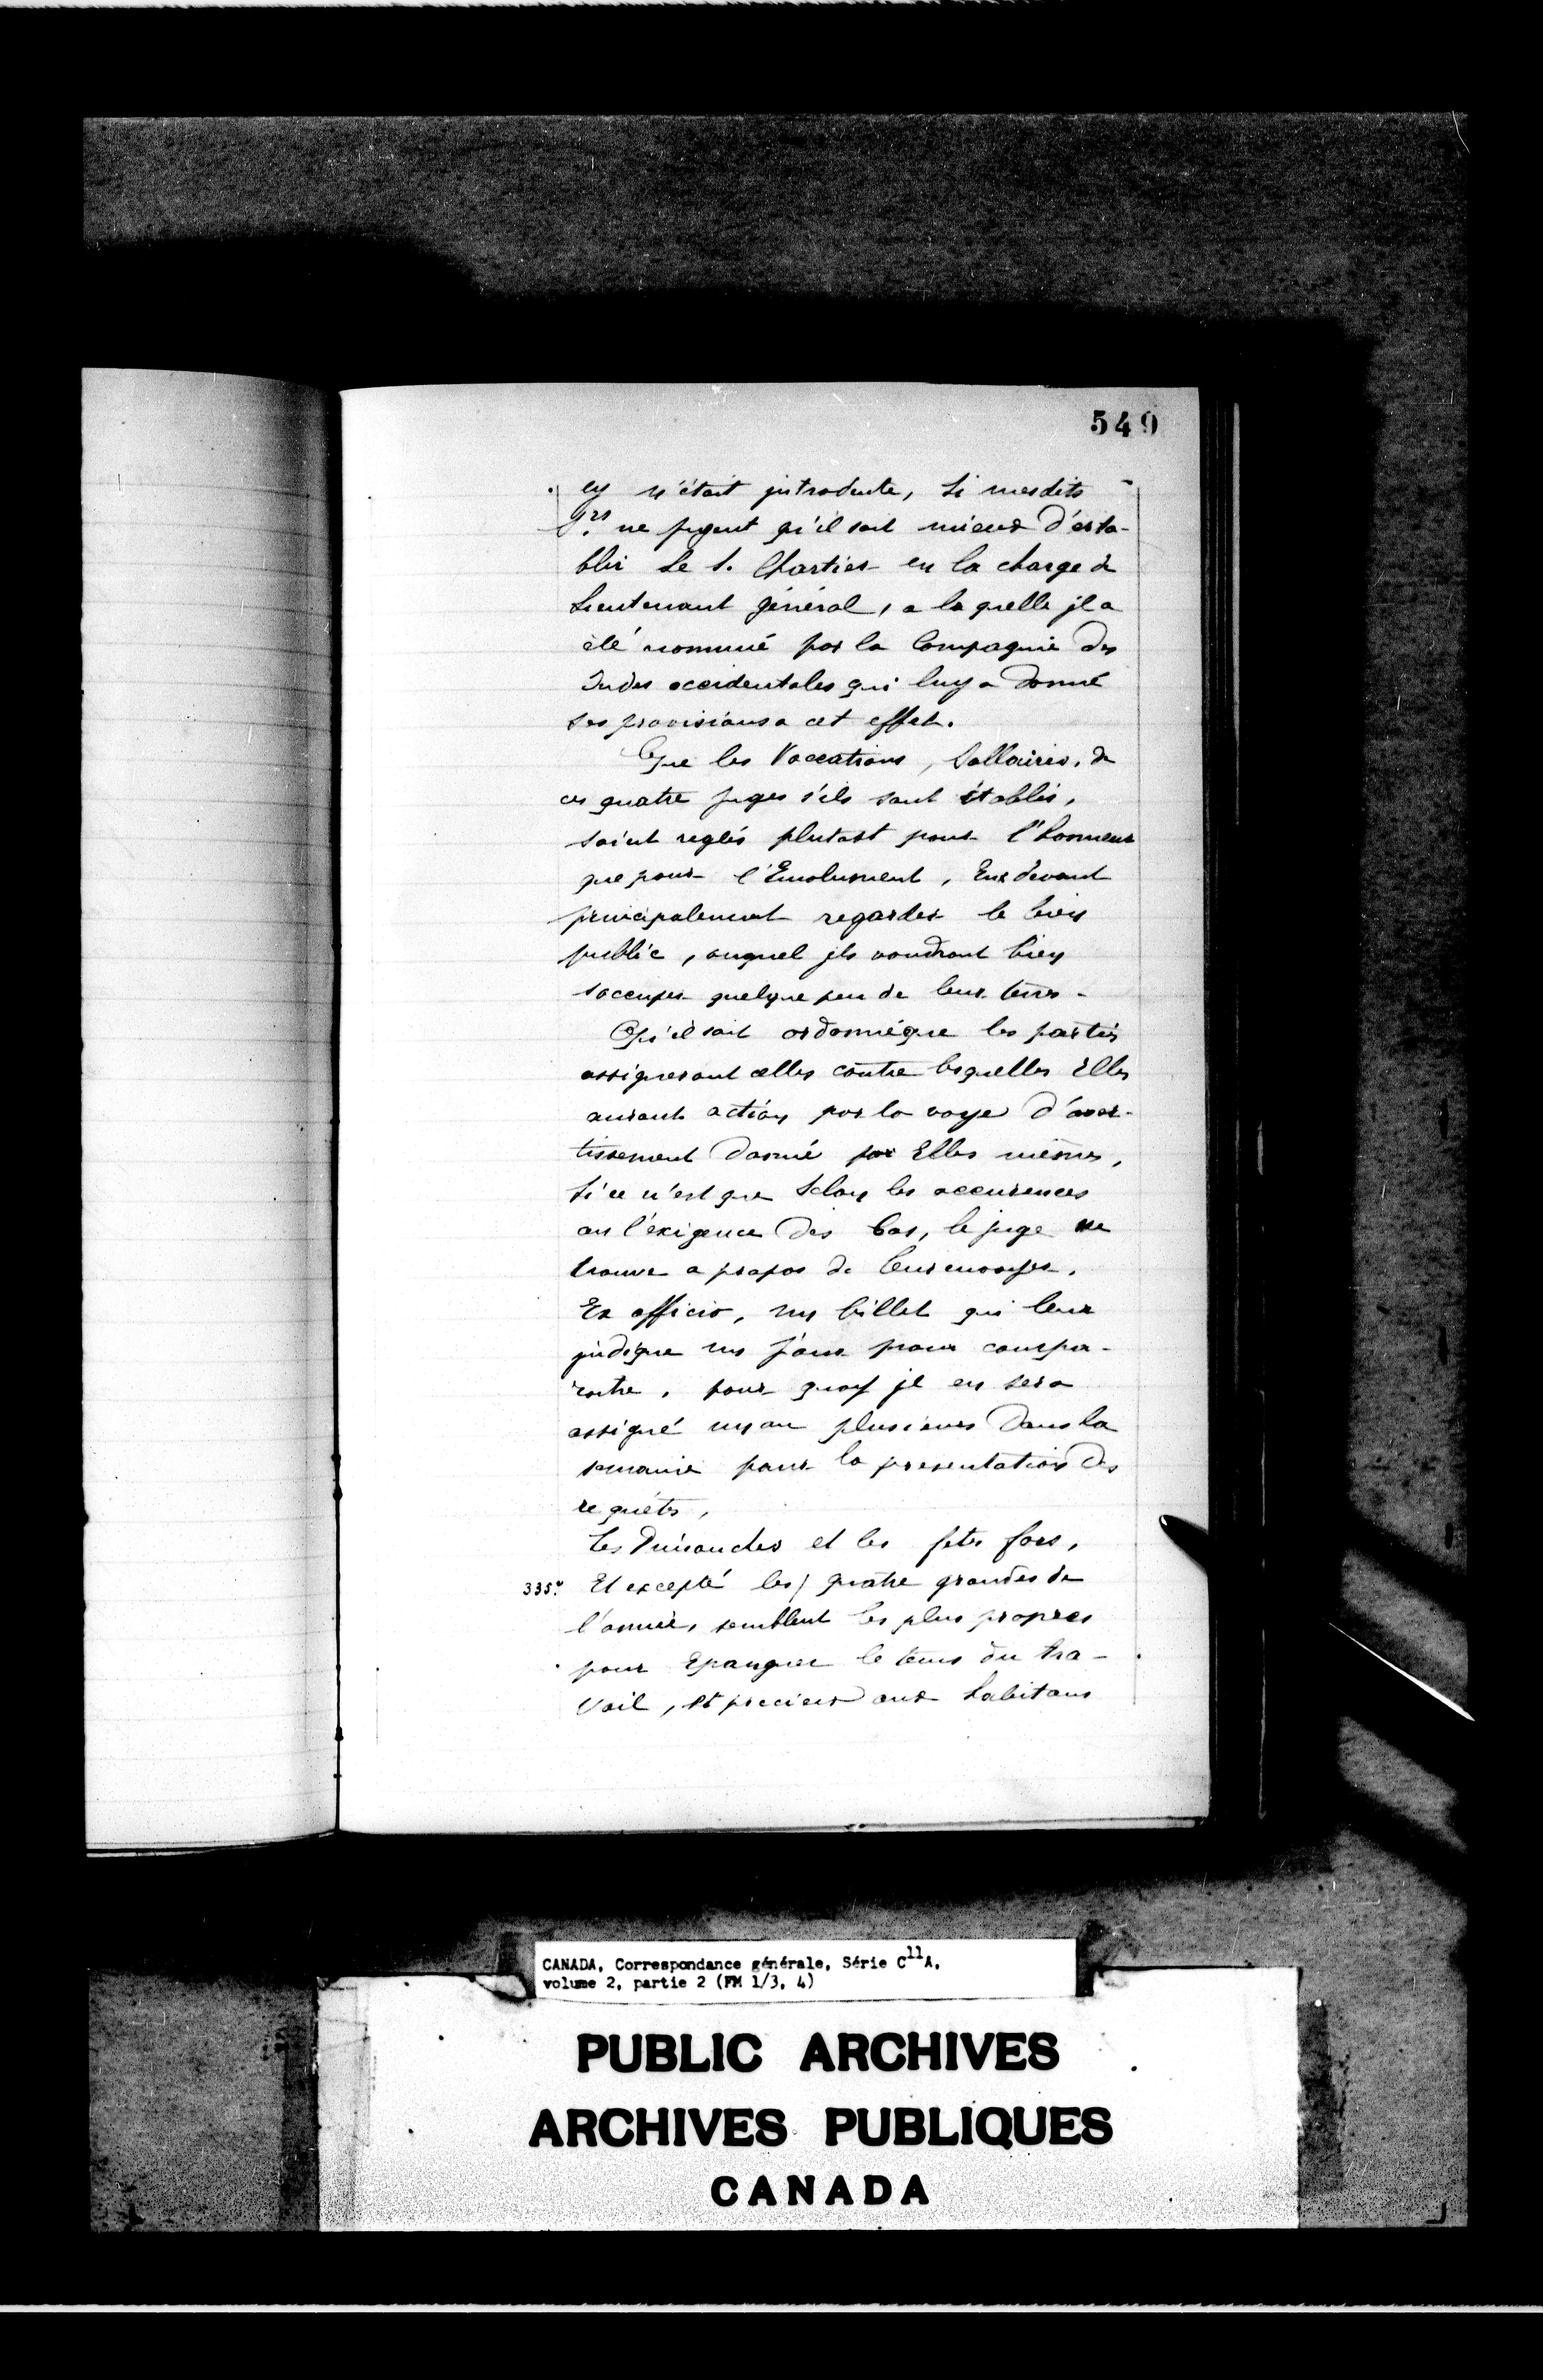 549
ey n'était jntroduite, Si mesdits
Srs. ne jugent qu'il soit mieux d'esta-
blir Le S. Chartier en la charge de
Lieutenant général, a la quelle jl a
été nommé par la Compagnie des
Indes occidentales qui luy a donné
ses provisions a cet effet.
Que les Vaccations, Sallaires, de
ces quatre juges s'ils sont établis,
soi'nt reglés plutost pour l'honneur
que pour l'Emolument, Eux devant
principalement regarder le biey
public, auquel jls voudront biey
s'occuper quelque peu de leur tems.
Qu'il soit ordonné que les parties
assigneront celles contre lesquelles Elles
auront actioy par la voye d'aver-
tissement donné par Elles mêmes,
Si ce n'est que Seloy les occurences
ou l'exigence des Cas, le juge ne
trouve a propos de leur envoyer,
Ex officio, uy billet qui leur
jndique uy jour pour compa-
roitre, pour quoy jl en sera
assigné uy ou plusieurs dans la
semaine pour la presentatioy des
requêtes,
Les Dimanches et les fetes fors,
335v. Et excepté les / quatre grandes de
l'année, semblent les plus propres
pour Epargner le tems du tra-
Vail, st precieux aux habitans
CANADA, Correspondance générale, Série C11A,
volume 2, partie 2 (FM 1/3, 4)
PUBLIC ARCHIVES
ARCHIVES PUBLIQUES
CANADA